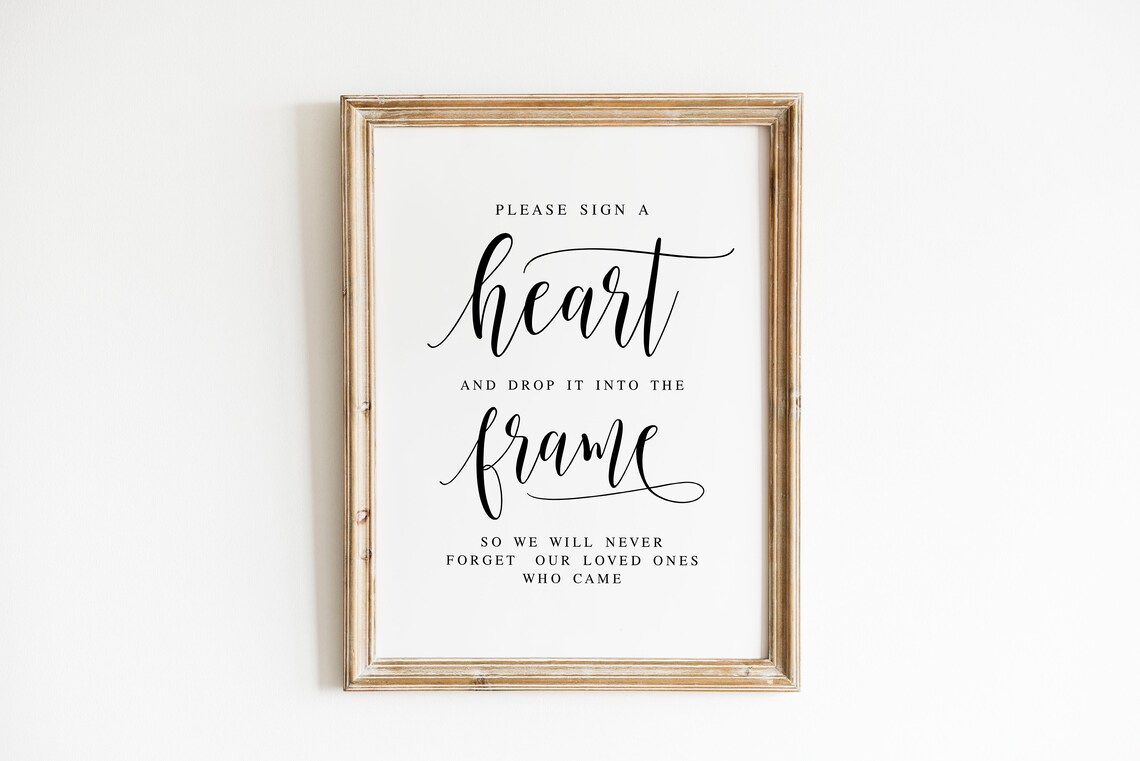 PLEASE SIGN A
heart
AND DROP IT INTO THE
frame
SO WE WILL NEVER
FORGET OUR LOVED ONES
WHO CAME